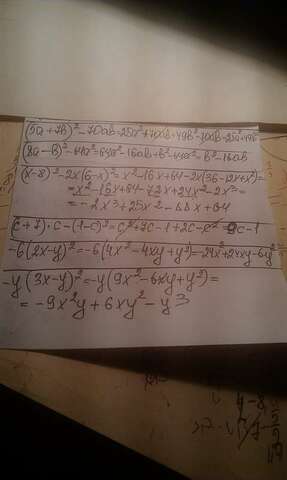 (5a+7b)²-70ab=25a²+70ab+49b²-70ab=25a²+49b²
(8a-b)²-64a²=64a²-16ab+b²-64a²=b²-16ab
(x-8)²-2x(6-x)²=x²-16x+64-2x(36-12x+x²)=
=x²-16x+64-72x+24x²-2x³=
=-2x³+25x²-88x+64
(c+7)·c-(1-c)²=c²+7c-1+2c-c²=9c-1
-6(2x-y)²=-6(4x²-4xy+y²)=-24x²+24xy-6y²
-y(3x-y)²=-y(9x²-6xy+y²)=
=-9x²y+6xy²-y³